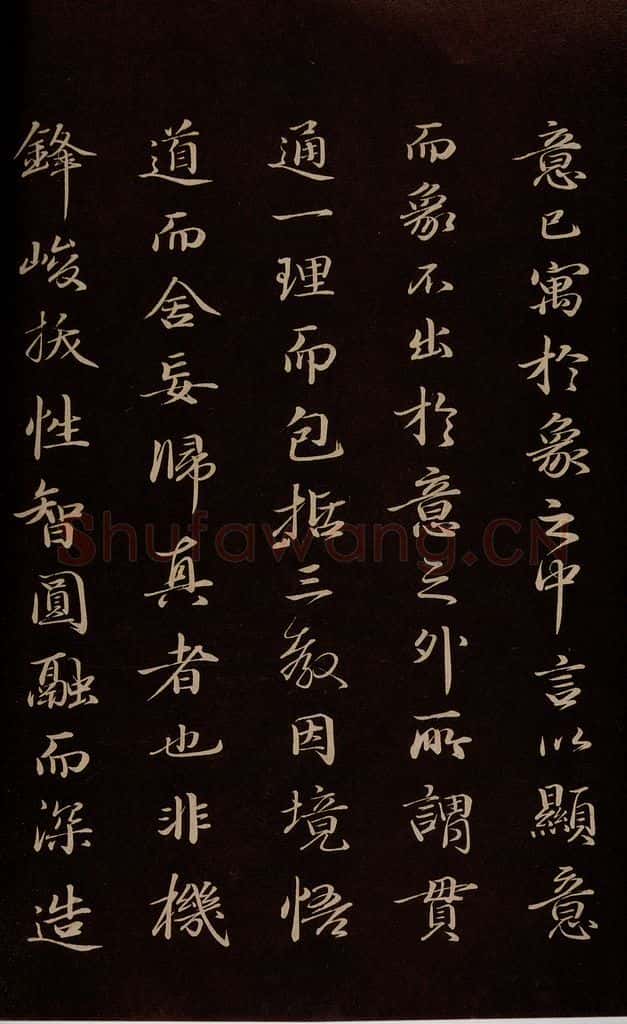 意已寓於象之中言以顯意
而象不出於意之外所謂貫
通一理而包括三教因境悟
道而舍妄歸真者也非機
鋒峻拔性智圓融而深造
Shufawang.CN